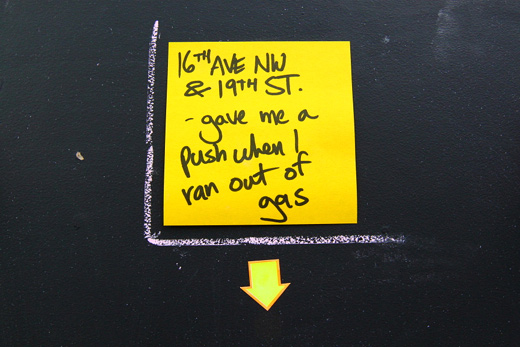 16TH AVE NW
& 19TH ST.
- gave me a
push when I
ran out of
gas